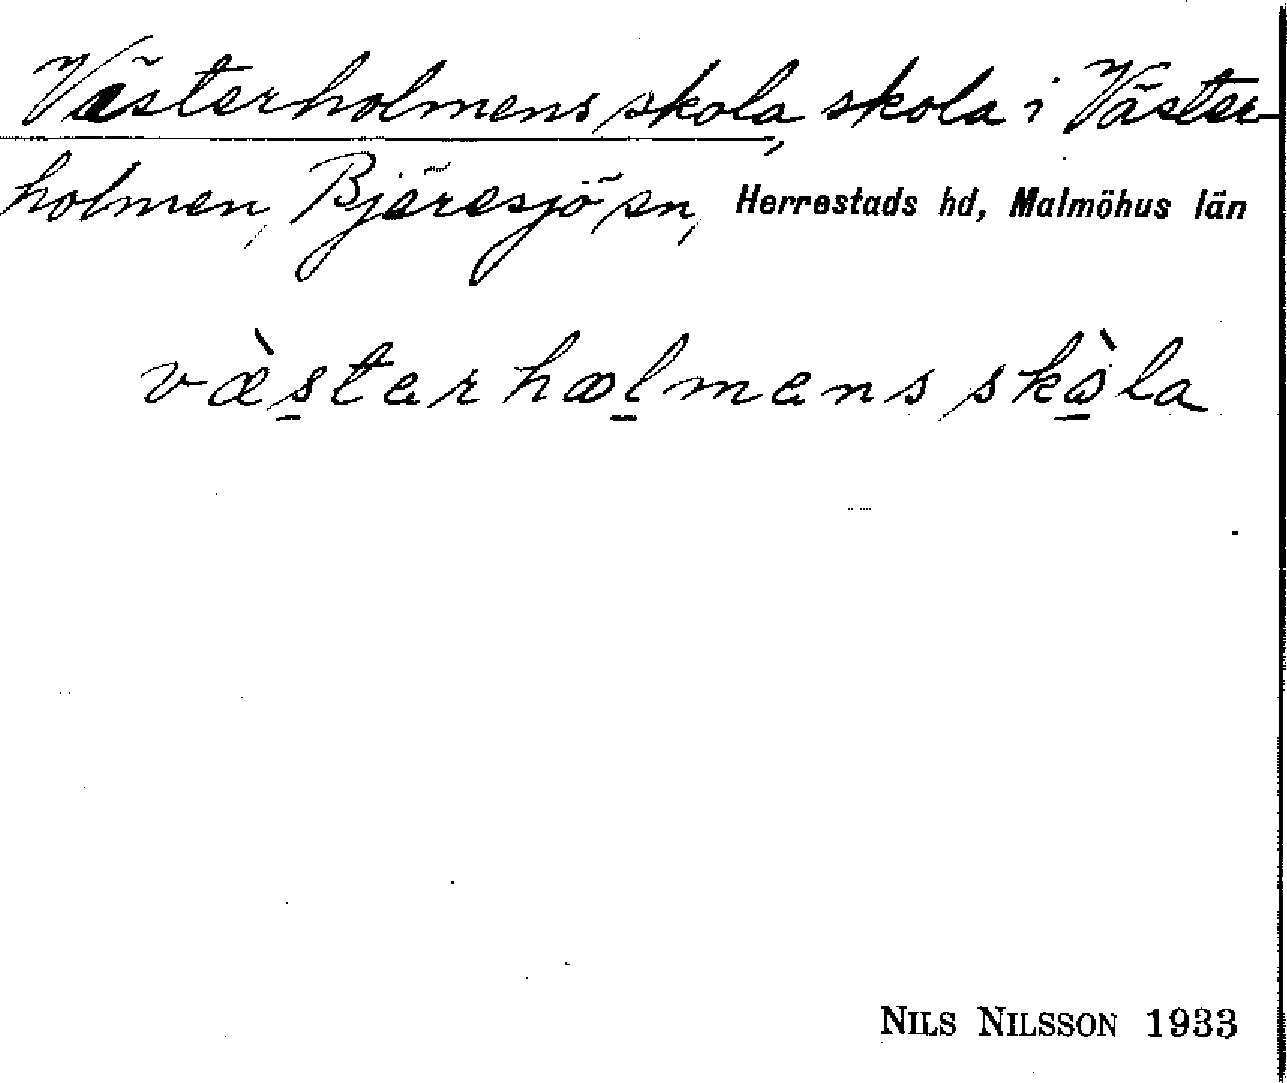 Västerholmens skola, skola i Väster-
holmen, Bjäresjö sn, Herrestads hd, Malmöhus län
væ̀stərhɷlməns skɷ̀la
NILS NILSSON 1933